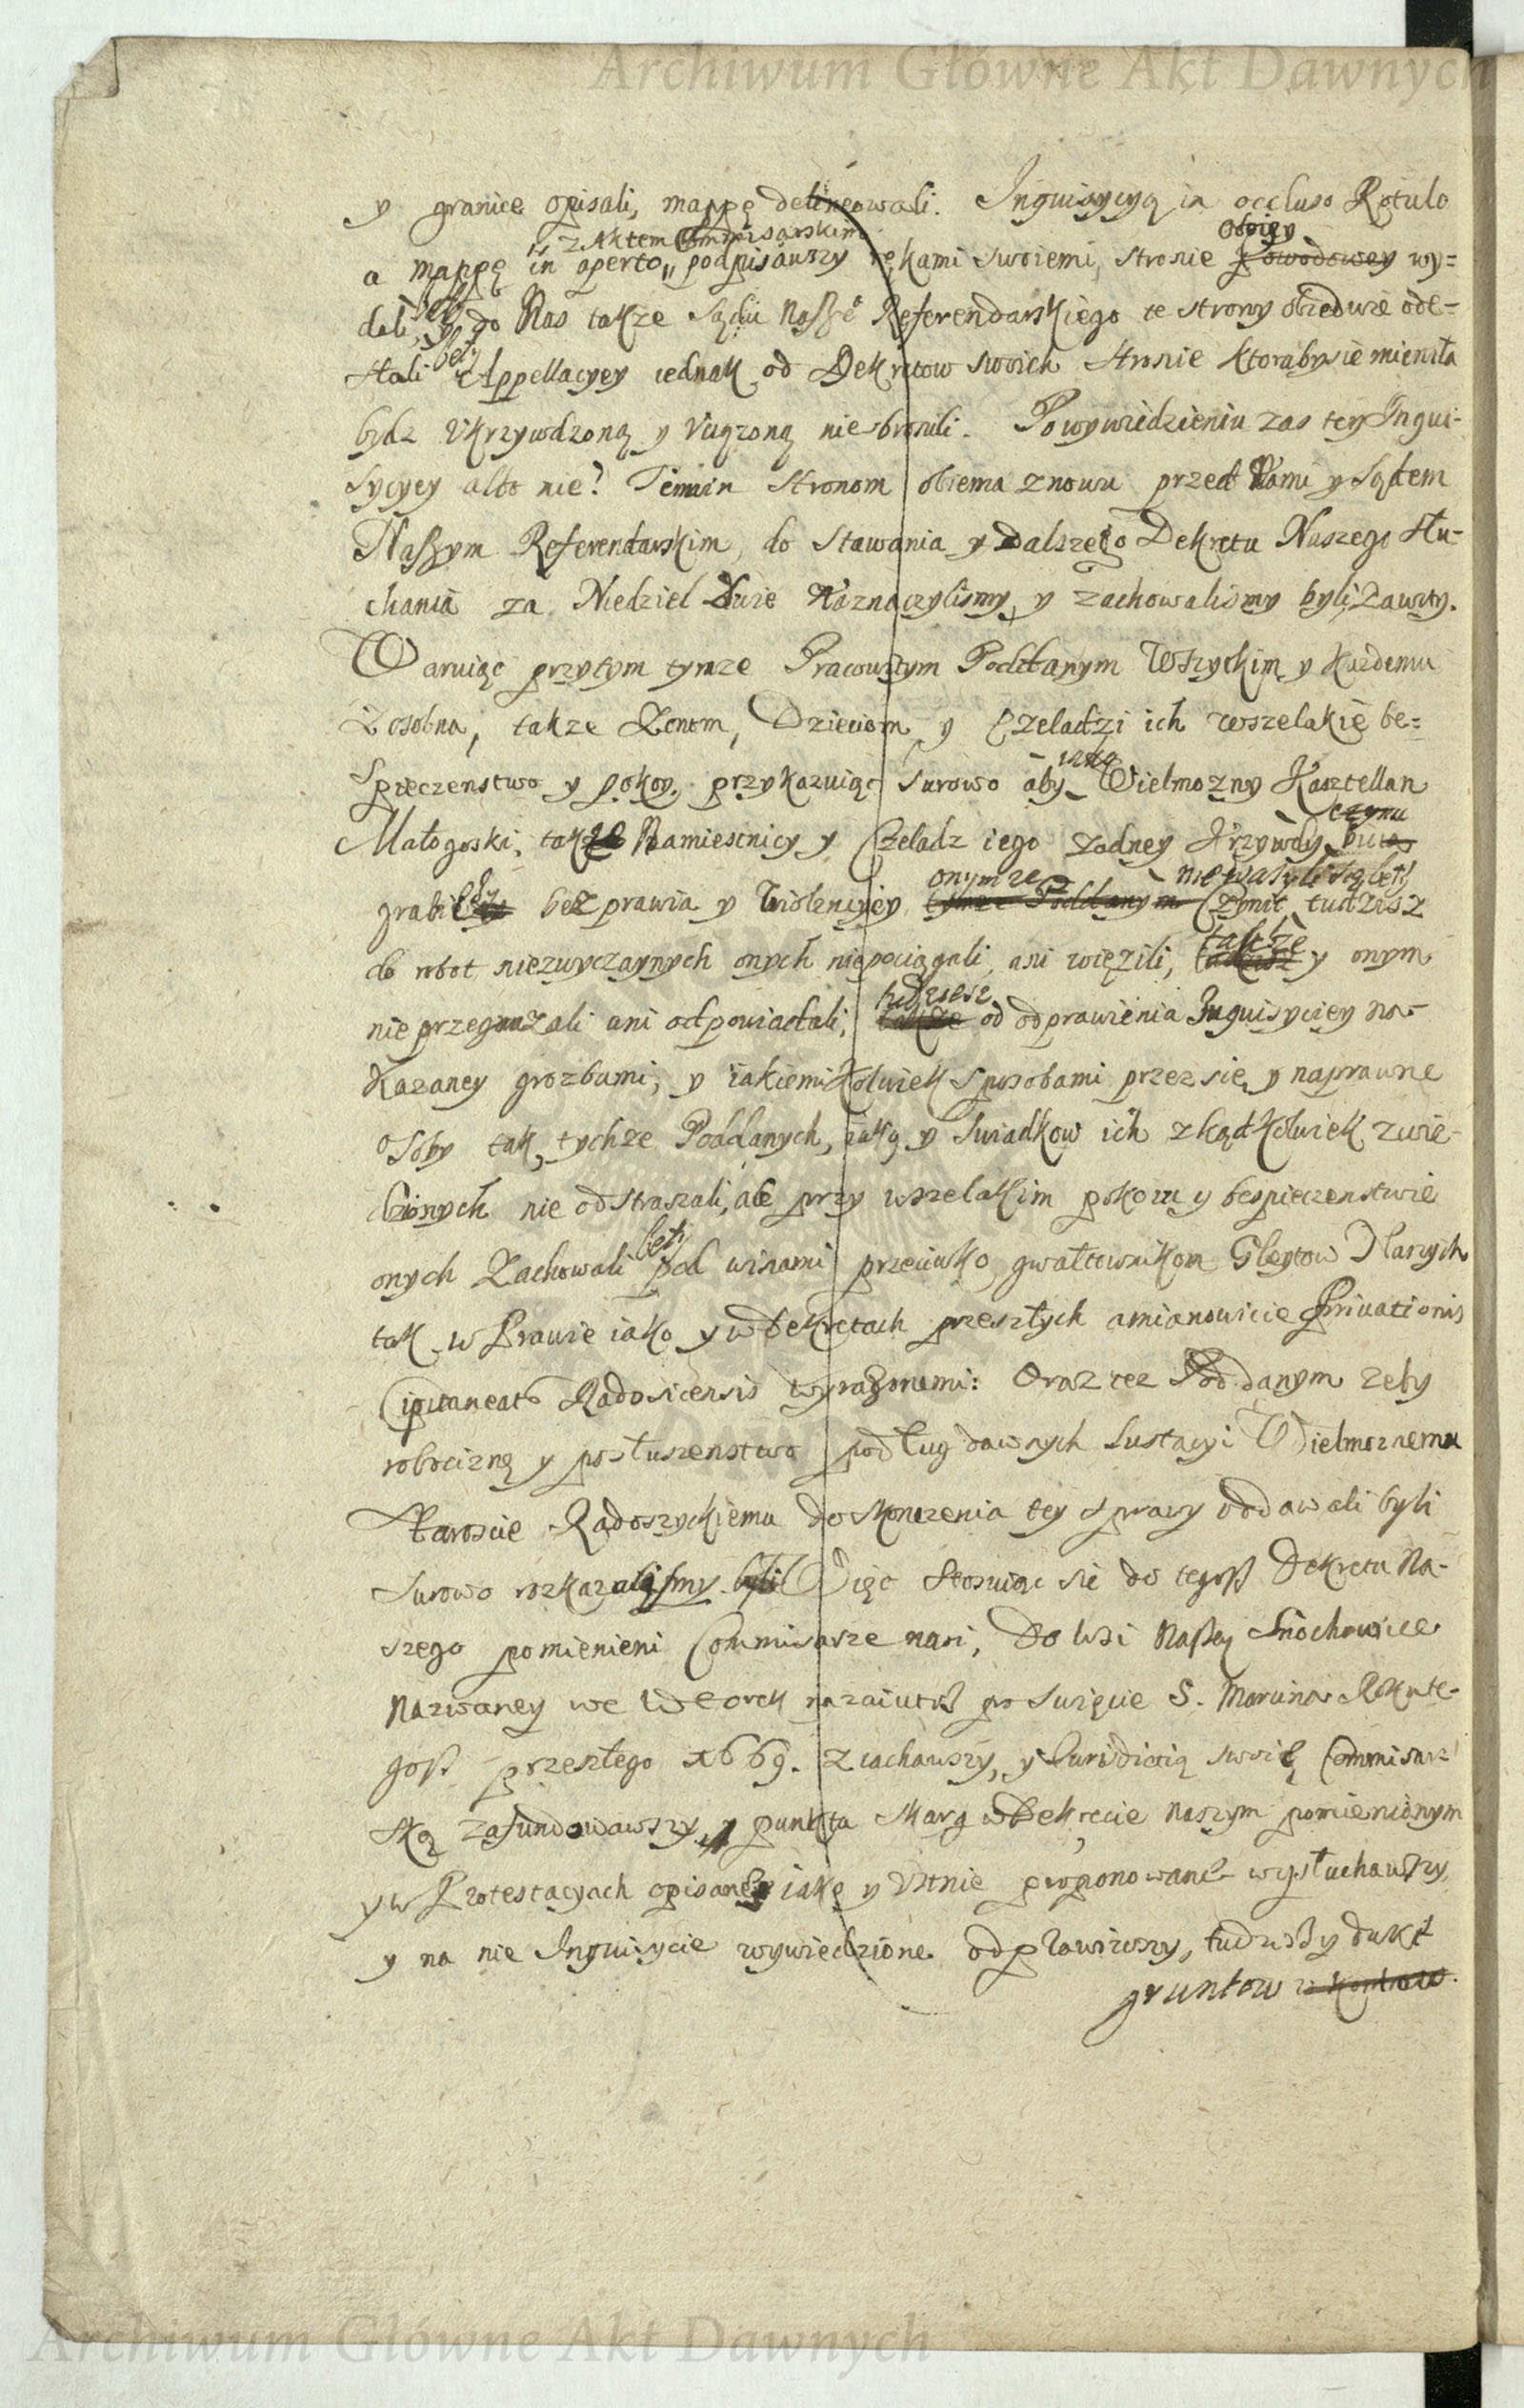 Archiwum Główne Akt Dawnych
y granice opisali, mappę delineowali. Inquisycyą in occluso Rotulo
z Aktem Commisarskim
oboiey
a mappę in aperto podpisawszy rękami swoiemi, stronie powodowey wy=
dali, y do Nas także Sądu Nasze Referendarskiego te strony obiedwie ode=
były
słali Appellacyey iednak od Dekretow swoich stronie ktoraby sie mieniła
bydz Ukrzywdzoną y Uciązoną nie bronili. Po wywiedzieniu zas tey Inqui-
sycyey albo nie? Termin stronom obiema znowu przed Nami y Sądem
Naszym Referendarskim, do stawania y dalszego Dekretu Naszego słu-
chania za Niedziel dwie naznaczylismy y zachowalismy byli, zawity.
Waruiąc przytym tymze Pracowitym Poddanym wszyckim y kazdemu
z osobna, takze Zonom, Dzieciom y Czeladzi ich wszelakie be=
iako
spieczenstwo y pokoy. przykazuiąc surowo aby Wielmozny Kasztellan
czynu
Małogoski, takze Namiesnicy y Czeladz iego zadney krzywdy
onymze nie wazyli się były
grabiezy bezprawia y Violencyey tymze Poddanym czynic, tudziesz
takze
do robot niezwyczaynych onych niepociągali, ani więzili, y onym
tudziesz
nie przegrazali ani odpowiadali, takze od odprawienia Inquisyciey na-
kazaney grozbami, y iakiemikolwiek sposobami przez się y naprawne
osoby tak tychze Poddanych, iako y swiadkow ich zkądkolwiek zwie-
dzionych nie odstraszali, ale przy wszelakim pokoiu y bespieczenstwie
były
onych zachowali pod winami przeciwko gwałtownikom Gleytow Naszych
tak w Prawie iako y w dekretach przeszłych a mianowicie Privationis
Capitaneatus Radosicensis wyrazonemi: Oraz tez Poddanym zeby
robociznę y posłuszenstwo podług dawnych Lustacyi Wielmoznemu
Staroscie Radoszyckiemu do skonczenia tey sprawy oddawali byli
surowo rozkazalismy byli Więc stosuiąc sie do tegosz Dekretu Na-
szego pomienieni Commisarze nasi, do Wsi Naszey Snochowice
nazwaney we Wtorek nazaiutrz po Swięcie S. Marcina Roku te-
gosz przeszłego 1669. ziachawszy, y Iurisdictią swoię Commisar=
ską zafundowawszy, y punkta skarg w Dekrecie naszym pomienionym
y w Protestacyach opisane iako y ustnie proponowane wysłuchawszy,
y na nie Inquisycie wywiedzione odprawiwszy, tudziesz y dukt
gruntow
Archiwum Główne Akt Dawnych